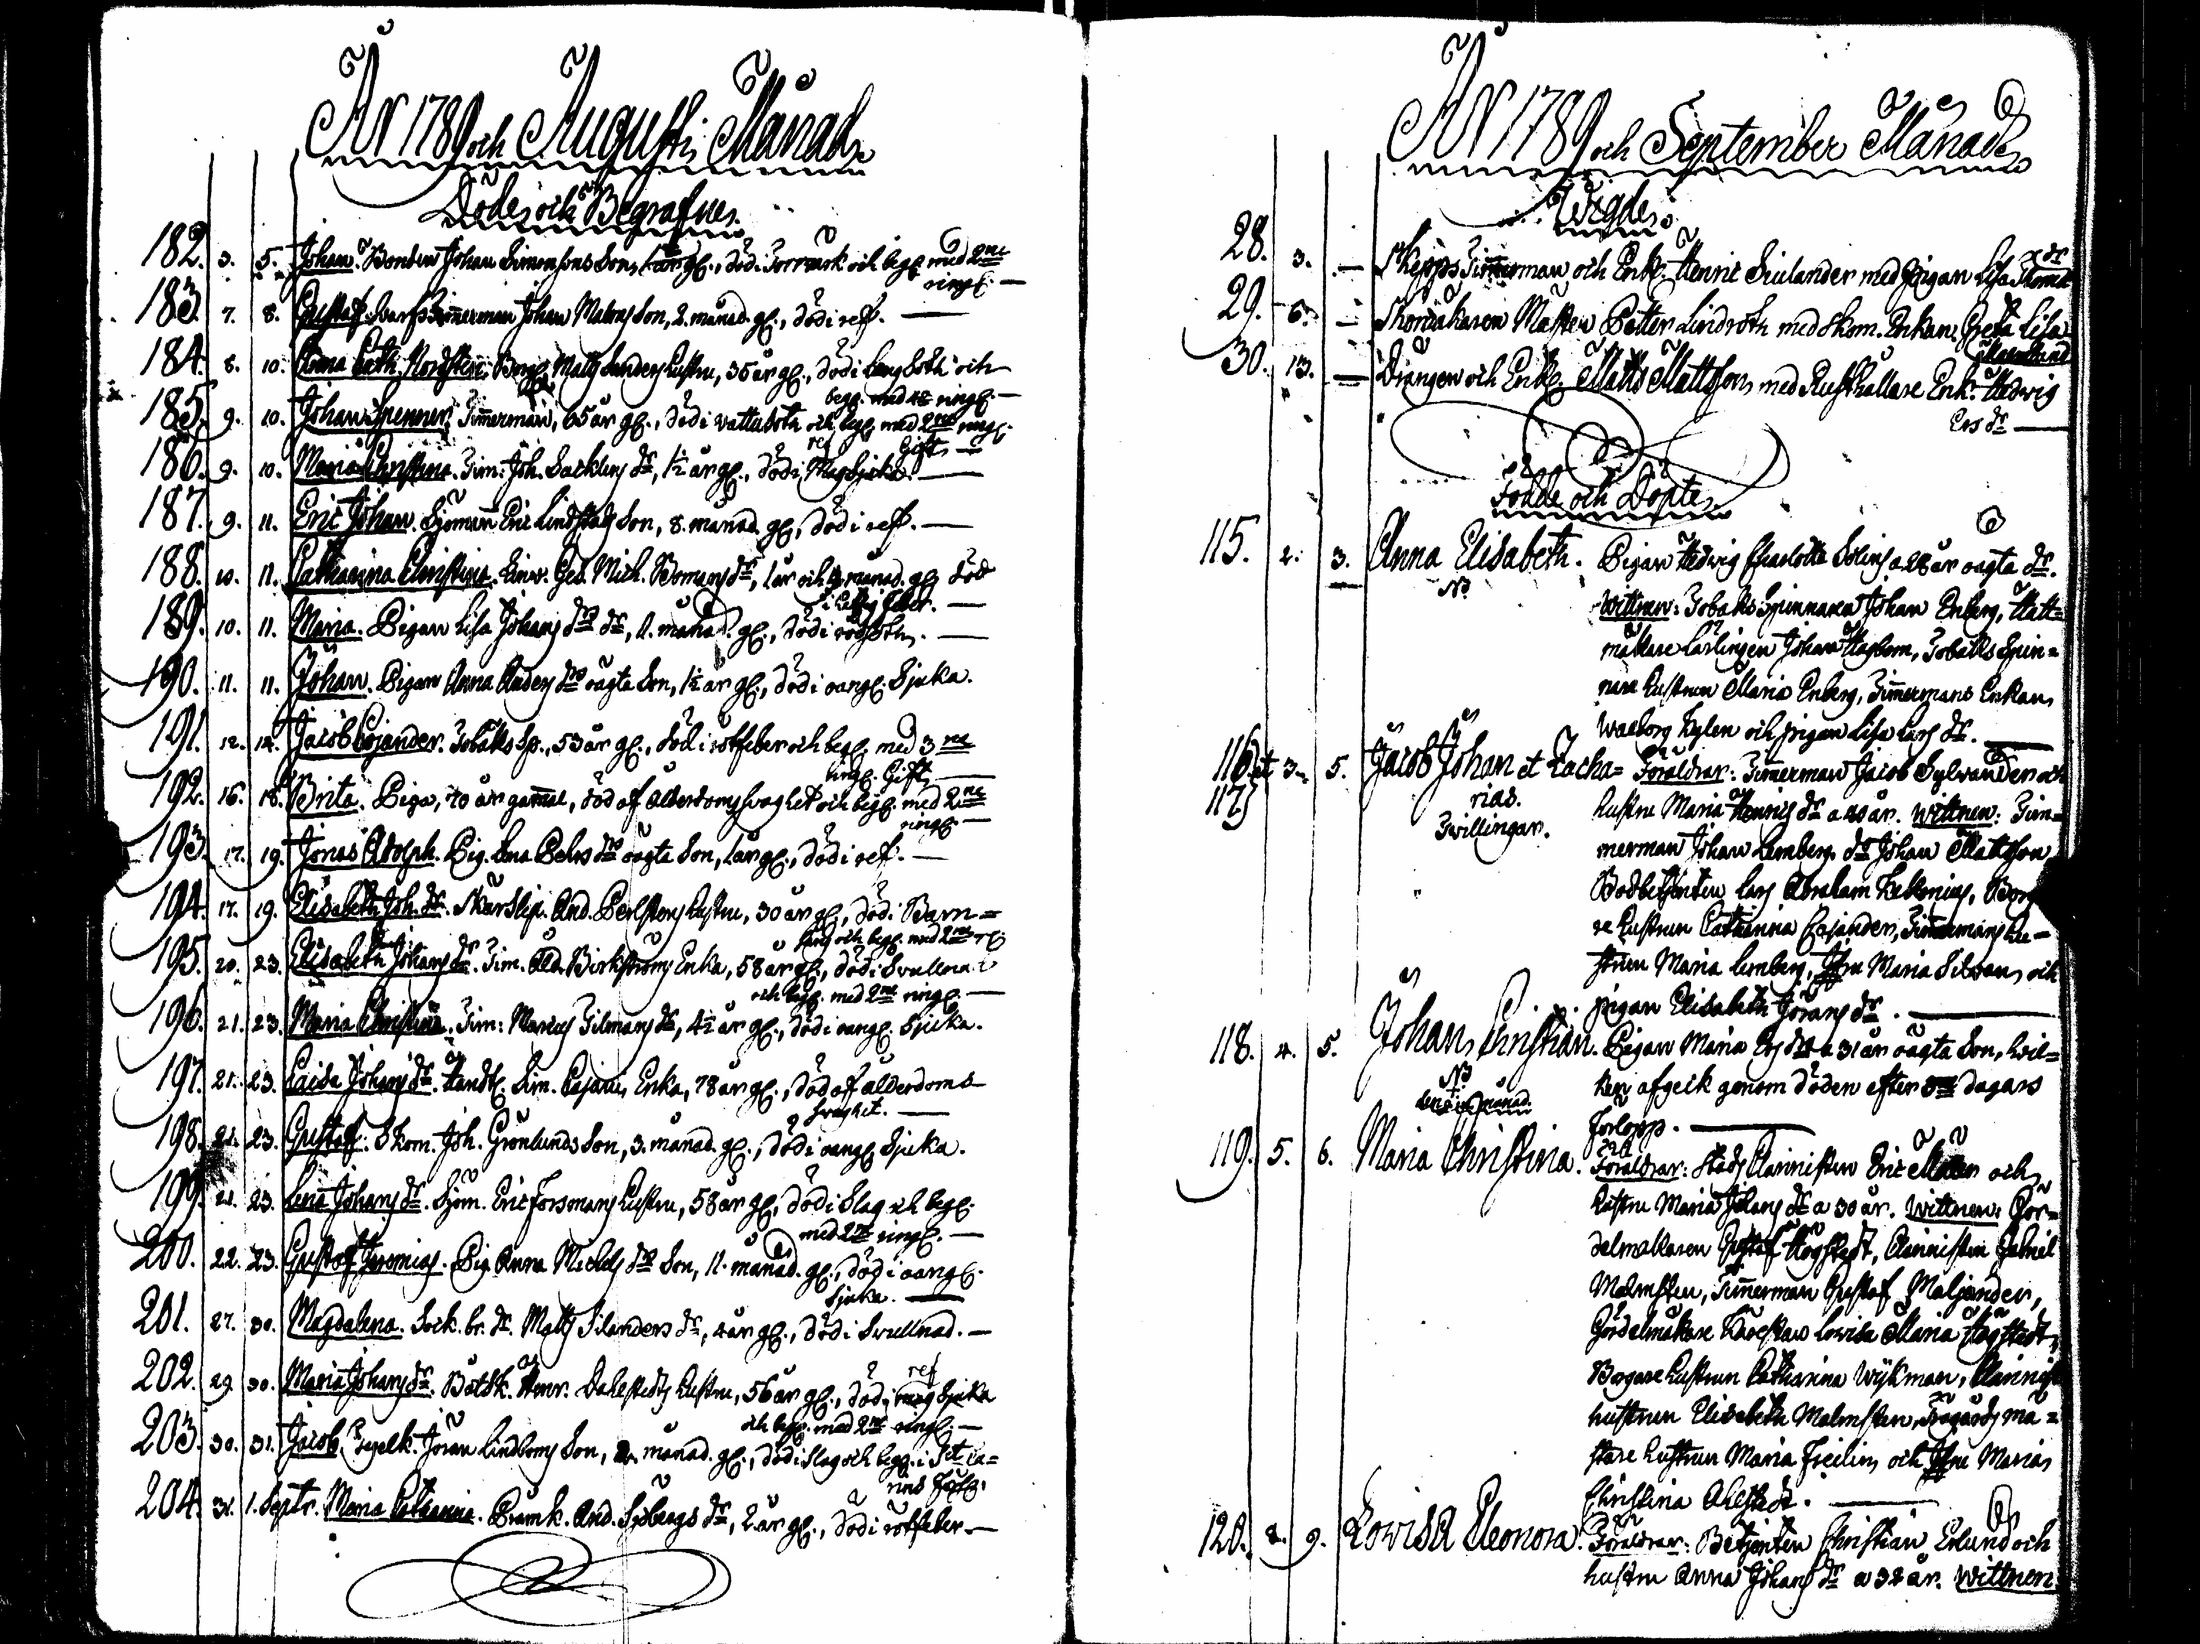 År 1789 och Augusti Månad
Döde och Begrafne
182. 3. 5. Johan. Bonden Johan Simonsons Son, 1 år gl., död i Torrwärk och begr. med 2ne
ringl.
183. 7. 8. Gustaf. Skepps Timmerman Johan Malms Son, 2. månad. gl., död i ref.
184. 8. 10. Anna Cath. Nordsten. Borg. Matts Sanders hustru, 35 år gl., död i och
begr. med ringl.
185. 9. 10. Johan Spenner. Timmerman, 65 år gl., död i wattusoth och begr. med 2ne ringl.
Gift.
186. 9. 10. Maria Christina. Tim: Joh. Sacklins dr, 1½ år gl., död i Magsjuka.
ref
187. 9. 11. Eric Johan. Sjöman Eric Lindstads Son, 8. månad. gl., död i ref.
188. 10. 11. Catharina Christina. Mich. Bomans dr, 1 år och månad. gl. död
i hettsig feber.
189. 10. 11. Maria. Pigan Lisa Johans drs dr, månad. gl., död i rödsoth.
190. 11. 11. Johan. Pigan Anna Anders drs oägta Son, 1½ år gl., död i oangl. Sjuka.
191. 12. 14. Jacob Cojander. Tobaks Sp., 53 år gl., död i rötfeber och begr. med 3ne
ringl. Gift.
192. 16. 18. Brita. Piga, 70 år gammal, död af ålderdoms swaghet och begr. med 2ne
ringl.
193. 17. 19. Jonas Adolph. Pig. Lena Pehrs drs oägta Son, 1 år gl., död i ref.
194. 17. 19. Elisabeth Joh. dr. And. Perlstens hustru, 30 år gl., död i Barn=
säng och begr. med 2ne rgl.
195. 20. 23. Elisabeth Johans dr. Tim. Björkströms Enka, 58 år gl., död i Swullnad
och begr. med 2ne ringl.
196. 21. 23. Maria Christina. Tim: Marcus Tilmans dr, 4½ år gl., död i oangl. Sjuka.
197. 21. 23. Caisa Johans dr. Handl. Sim. Cajani Enka, 78 år gl., död af ålderdoms
swaghet.
198. 21. 23. Gustaf. Skom. Joh. Grönlunds Son, 3. månad. gl., död i oangl. Sjuka.
199. 21. 23. Lena Johans dr. Sjöm. Eric Forsmans hustru, 58 år gl., död i Slag och begr.
med 2ne ringl.
200. 22. 23. Gustaf Jeremias. Pig. Anna Michels drs Son, 11. månad. gl., död i oangl.
Sjuka.
201. 27. 30. Magdalena. Sock. br. dr. Matts Silanders dr, 4 år gl., död i Swullnad.
202. 29. 30. Maria Johans dr. Båtsk. Henr. Dahlstedts hustru, 56 år gl., död i Sjuka
ref
och begr. med 2ne ringl.
203. 30. 31. Jacob. Tegelk. Jöran Lindboms Son, månad. gl., död i Slag och begr. i St Ca=
rins Förs.
204. 31. 1. Septr. Maria Catharina. And. Sjöbergs dr, 2 år gl., död i rötfeber.
År 1789 och September Månad
Wigde
28. 3. — Skepps Timmerman och Enkl. Henric Siulander med Pigan Lisa Thomas
dr
29. 6. — Skomakaren Mästen Petter Lindroth med Skom. Enkan Greta Lisa
30. 13. — Drängen och Enkl. Matts Mattsson med Rusthållare Enk. Hedwig
Ers dr
Födde och Döpte
115. 2. 3. Anna Elisabeth. Pigan Hedwig Charlotta Solins a 28 år oägta dr.
N.
Wittnen: Tobaks Spinnaren Johan Enberg, Hatt=
makare Lärlingen Johan Hagbom, Tobaks Spin=
nare hustrun Maria Enberg, Timmermans Enkan
Walborg Kylen och pigan Lisa Lars dr.
116. et 3. 5. Jacob Johan et Zacha= Föräldrar: Timmerman Jacob Sylwander och
117.
rias. hustru Maria Henrics dr a 40 år. Wittnen: Tim=
Twillingar.
merman Johan Lemberg, do Johan Mattsson
Bodbetjenten Lars Abraham Zellenius, Borga
re hustrun Catharina Cajander, Timmermans hu=
strun Maria Lemberg, Jfru Maria Silwan, och
pigan Elisabeth Jörans dr.
118. 4. 5. Johan Christian. Pigan Maria Ers dr a 31 år oägta Son, hwil=
N.
ken afgeck genom döden efter dagars
förlopp.
119. 5. 6. Maria Christina. Föräldrar: Stads Clarinisten Eric och
hustru Maria Johans dr a 30 år. Wittnen: Gör=
delmakaren Gustaf Högstedt, Clarinisten Gabriel
Malmsten, Timmerman Gustaf Maljander,
Gördelmakare Käresta Lowisa Maria Högstedt,
Borgare hustrun Catharina Wijkman, Clarinist
hustrun Elisabeth Malmsten, Trägårds mä=
stare hustrun Maria Freilin, och Jfru Maria
Christina Ahlstedt.
120. 8. 9. Lovisa Eleonora. Föräldrar: Betjenten Christian Edlund och
hustru Anna Johans dr a 32 år. Wittnen